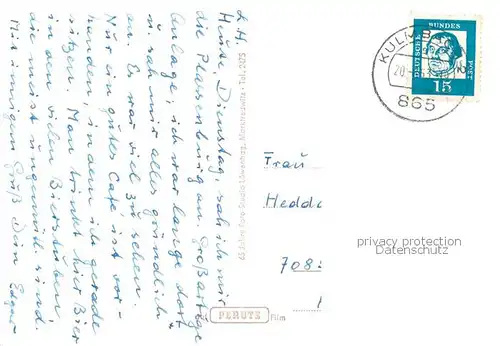 L. H.
Heute, Dienstag, sah ich mir
die Plassenburg an. Großartige
Anlage, ich war lange dort
u. sah mir alles gründlich
an. Es war viel zu sehen.
Nur ein gutes Café ist vor-
handen, in dem ich gerade
sitzen. Man trinkt hier Bier
in den vielen Bierstuben,
die meist ungemütl. sind.
Mit innigem Gruß Dein Edgar
Tel. 2575
PERUTZ Film
Frau
Hedd
708
KULMB
20
865
DEUTSCHE BUNDESPOST
15
privacy protection
Datenschutz